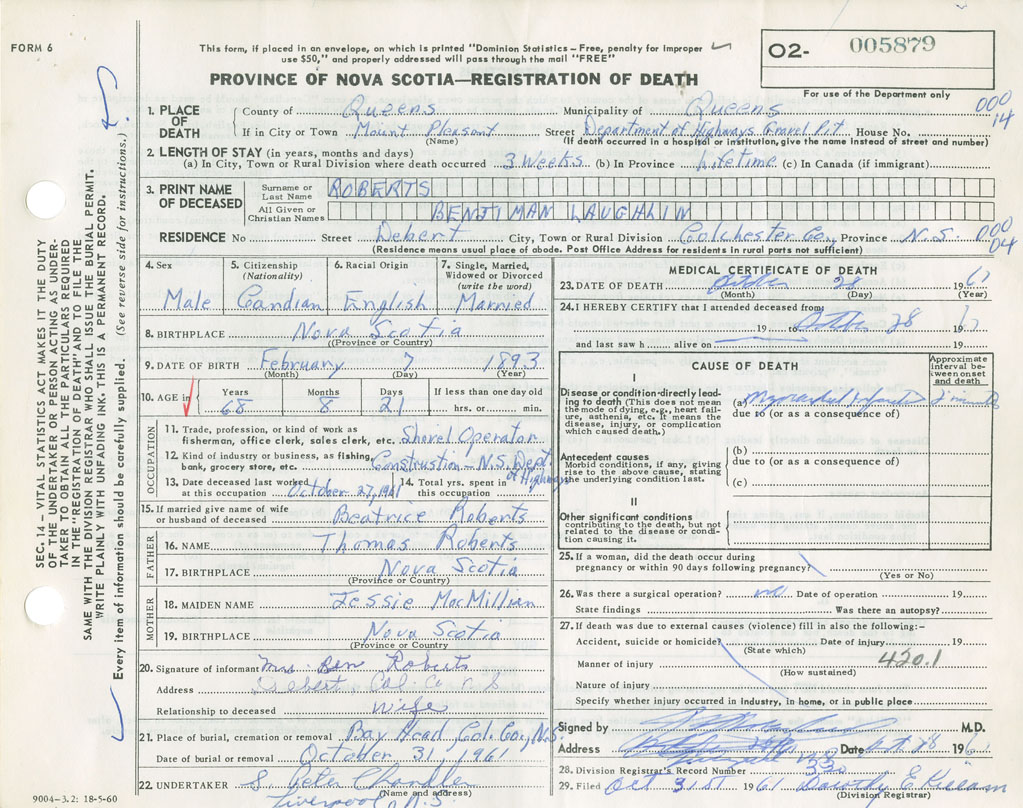 FORM 6
This form, if placed in an envelope, on which is printed "Dominion Statistics – Free, penalty for improper
use $50," and properly addressed will pass through the mail "FREE"
O2- 005879
PROVINCE OF NOVA SCOTIA—REGISTRATION OF DEATH
For use of the Department only
000
14
1. PLACE OF DEATH County of Queens Municipality of Queens
If in City or Town Mount Pleasant Street Department of Highways Gravel Pit House No.
(Name) (If death occurred in a hospital or institution, give the name instead of street and number)
2. LENGTH OF STAY (in years, months and days)
(a) In City, Town or Rural Division where death occurred 3 Weeks (b) In Province Lifetime (c) In Canada (if immigrant)
3. PRINT NAME OF DECEASED
Surname or Last Name ROBERTS
All Given or Christian Names BENTIMAN LAUGHLIN
RESIDENCE No Street Debert City, Town or Rural Division Colchester Co, Province N.S. 000
04
(Residence means usual place of abode. Post Office Address for residents in rural parts not sufficient)
4. Sex Male
5. Citizenship (Nationality) Candian
6. Racial Origin English
7. Single, Married, Widowed or Divorced (write the word) Married
8. BIRTHPLACE Nova Scotia
(Province or Country)
9. DATE OF BIRTH February 7 1893
(Month) (Day) (Year)
10. AGE in Years Months Days If less than one day old
68 8 21 hrs. or min.
OCCUPATION
11. Trade, profession, or kind of work as
fisherman, office clerk, sales clerk, etc. Shovel Operator
12. Kind of industry or business, as fishing,
bank, grocery store, etc. Construction - N.S. Dept. of Highways
13. Date deceased last worked at this occupation October 27, 1961
14. Total yrs. spent in this occupation
15. If married give name of wife
or husband of deceased Beatrice Roberts
FATHER
16. NAME Thomas Roberts
17. BIRTHPLACE Nova Scotia
(Province or Country)
MOTHER
18. MAIDEN NAME Jessie MacMillien
19. BIRTHPLACE Nova Scotia
(Province or Country
20. Signature of informant Mrs Ben Roberts
Address Debert Col. Co N S
Relationship to deceased Wife
21. Place of burial, cremation or removal Bay Head Col. Co, N.S.
Date of burial or removal October 31 1961
22. UNDERTAKER S. Peter Chandler
(Name and address)
Liverpool N.S
9004-3.2: 18-5-60
MEDICAL CERTIFICATE OF DEATH
23. DATE OF DEATH October 28 1961
(Month) (Day) (Year)
24. I HEREBY CERTIFY that I attended deceased from
19 to October 28 19 61
and last saw h alive on 19
CAUSE OF DEATH
Approximate interval between onset and death
I
Disease or condition directly leading to death (This does not mean
the mode of dying, e.g., heart failure, asthenia, etc. It means the
disease, injury, or complication
which caused death.)
(a) Myocardial Infarction
due to (or as a consequence of)
Antecedent causes
Morbid conditions, if any, giving
rise to the above cause, stating
the underlying condition last.
(b)
due to (or as a consequence of)
(c)
II
Other significant conditions
contributing to the death, but not
related to the disease or condition causing it.
25. If a woman, did the death occur during
pregnancy or within 90 days following pregnancy?
(Yes or No)
26. Was there a surgical operation? no Date of operation 19
State findings Was there an autopsy?
27. If death was due to external causes (violence) fill in also the following:-
Accident, suicide or homicide? Date of injury 19
(State which)
420.1
Manner of injury
(How sustained)
Nature of injury
Specify whether injury occurred in industry, in home, or in public place
Signed by M.D.
Address Date Oct. 28 1961
28. Division Registrar's Record Number 33
29. Filed Oct 31ST 1961
(Division Registrar)
SEC. 14 – VITAL STATISTICS ACT MAKES IT THE DUTY
OF THE UNDERTAKER OR PERSON ACTING AS UNDERTAKER TO OBTAIN ALL THE PARTICULARS REQUIRED
IN THE "REGISTRATION OF DEATH" AND TO FILE THE
SAME WITH THE DIVISION REGISTRAR WHO SHALL ISSUE THE BURIAL PERMIT.
WRITE PLAINLY WITH UNFADING INK. THIS IS A PERMANENT RECORD.
Every item of information should be carefully supplied. (See reverse side for instructions.)